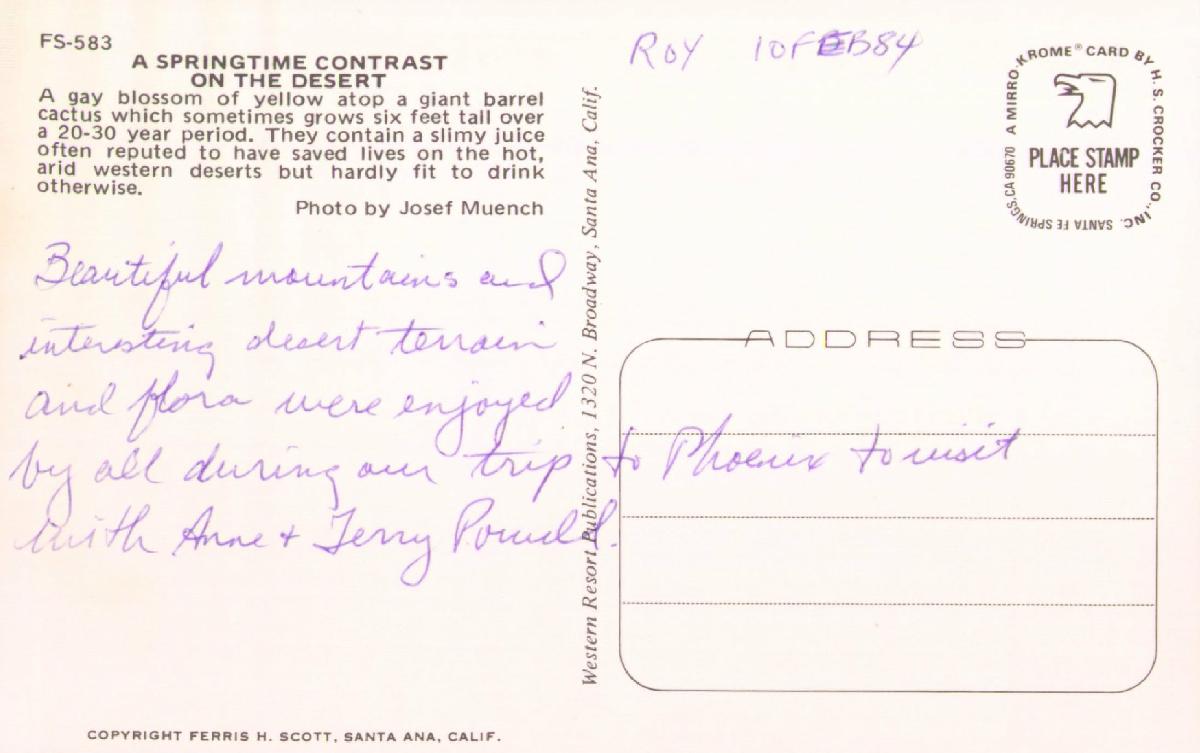 FS-583
A SPRINGTIME CONTRAST
ON THE DESERT
A gay blossom of yellow atop a giant barrel
cactus which sometimes grows six feet tall over
a 20-30 year period. They contain a slimy juice
often reputed to have saved lives on the hot,
arid western deserts but hardly fit to drink
otherwise.
Photo by Josef Muench
Beautiful mountains and
interesting desert terrain
and flora were enjoyed
by all during our trip to Phoenix to visit
with Anne + Terry Powell.
COPYRIGHT FERRIS H. SCOTT, SANTA ANA, CALIF.
Western Resort Publications, 1320 N. Broadway, Santa Ana, Calif.
ROY 10FEB84
A MIRRO-KROME® CARD BY H. S. CROCKER CO., INC. SANTA FE SPRINGS, CA 90670
PLACE STAMP
HERE
ADDRESS